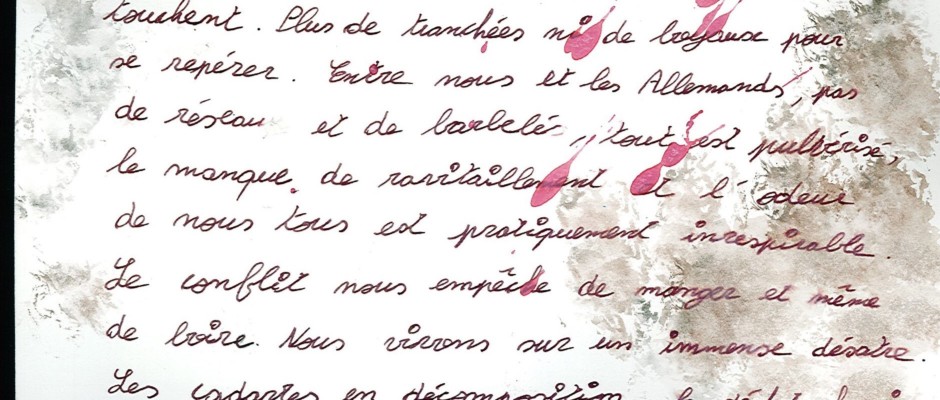 touchent. Plus de tranchées ni de boyaux pour
se repérer. Entre nous et les Allemands, pas
de réseau et de barbelé, tout est pulvérisé,
le manque de ravitaillement et l'odeur
de nous tous est pratiquement irrespirable.
Le conflit nous empêche de manger et même
de boire. Nous vivons sur un immense désastre.
Les cadavres en décomposition